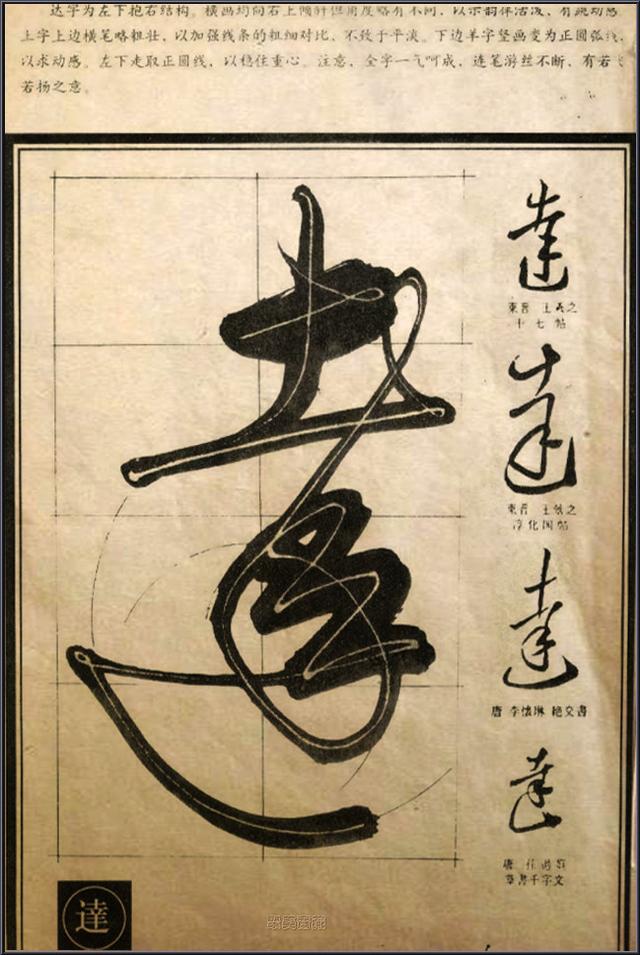 达字为左下抱右结构。横画均向右上倾斜但角度略有不同，以示韵律活泼，有跳动感
土字上边横笔略粗壮，以加强线条的粗细对比，不致于平淡。下边羊字竖画变为正圆弧线，
以求动感。左下走取正圆线，以稳住重心。注意，全字一气呵成，连笔游丝不断，有若
若扬之意。
達
達
東晋 王羲之
十七帖
達
東晋 王献之
淳化阁帖
達
唐 李懷琳 绝交書
達
唐
草書千字文
達